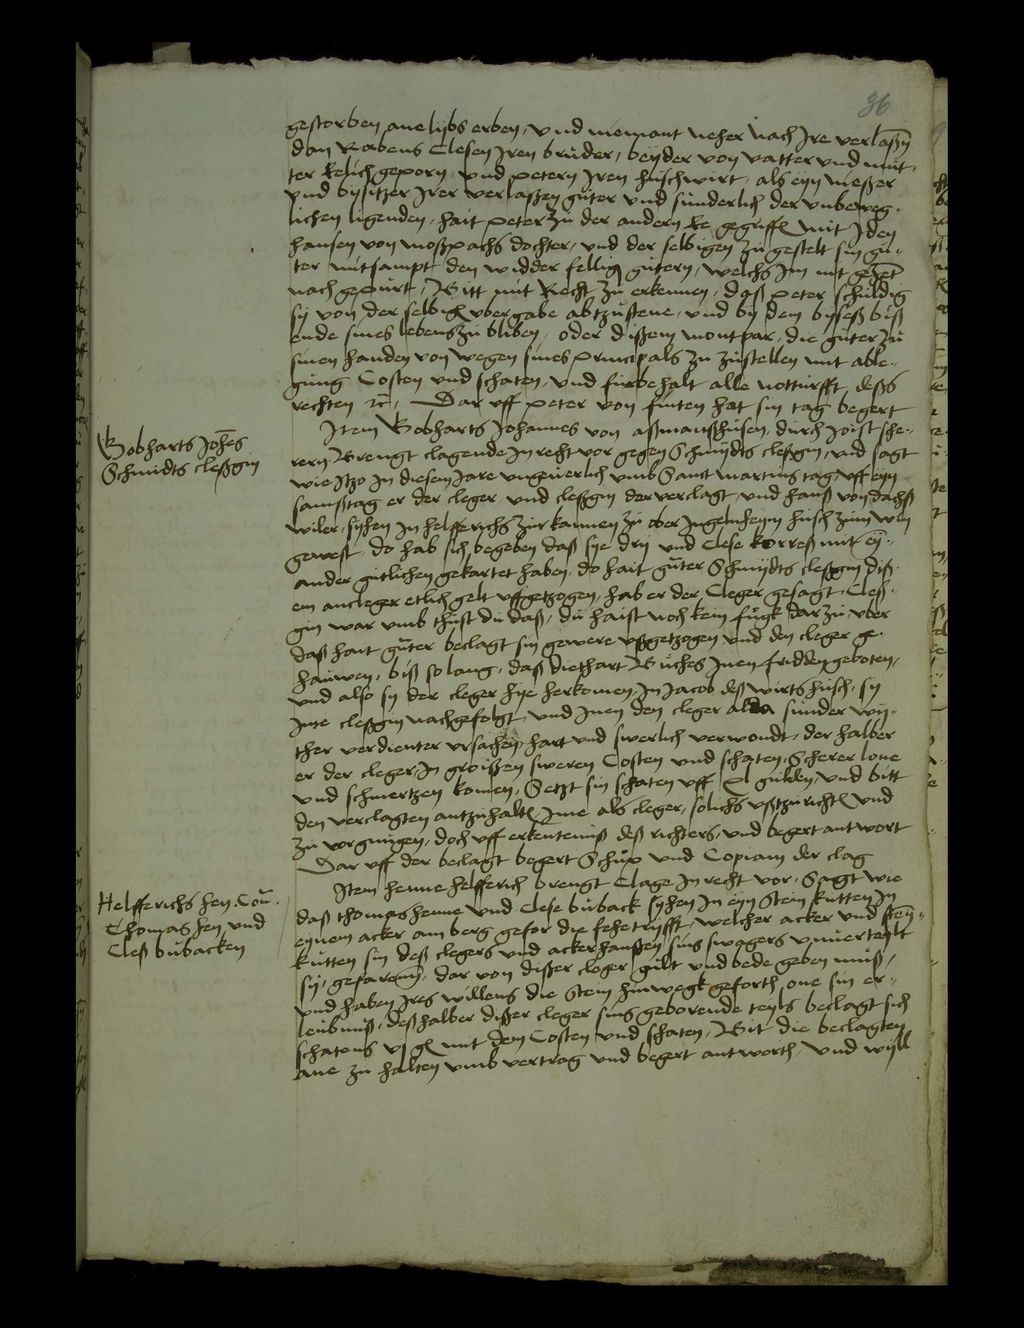 36
gestorben ane lybs erben, und niemant neher nach Ire verlaßn̄
dan Rabens Clesen Iren bruder, beyder von vatter und mut-
ter Eelich geporn, und petern Iren huschwirt, als eyn nießer
und bysitzer Irer verlaßen guter und sunderlich der unbeweg-
lichen ligenden, hait peter zu der andern Ee gegriffen mit Iden
hansen von moßpachs dochter, und der selbigen zu gestelt sin gu-
ter mitsampt den widder fellig gutern, welchs Im nit
nach gepurt, Bitt mit Recht zu erkennen, daß peter schuldig
sy von der selbigen ubergabe abtzustene, und by dem byseß biß
ende sines lebens zu bliben, oder dißem montpar, die guter zu
sinen handen von wegen sines principals zu zustellen mit able-
gung Costen und schaten, und furbehalt alle notturfft deßs
rechten ꝛc̄, Dar uff peter von finten hat sin tag begert
Item Bobharts Johannes von aßmanßhusen, durch Joist sche-
rern Brengt clagende In recht vor gegen Schmydts cleßgin, und sagt
wie Itzo In diesem Jare ungeuerlich umb Sanct martins tag, uff eyn
samßtag er der cleger, und cleßgin der verclagt, und hanß von dachß
wiler, syhen In helfferichs zur kannen zu ober Ingelnheym husch zum win
gewest, do hab sich begeben daß sye dry und Clese korreß mit ey-
ander gutlichen gekartet haben, do hait guter Schmydts cleßgin diß-
em ancleger etlich gelt uffgetzogen, hab er der Cleger gesagt, Cleß-
gin war umb thust du daß, du haist noch kein fugk dar zu, uber
daß hait guter beclagt sin gewere ußgetzogen und den cleger ge-
hauwen, biß so lang, daß diethart Buches Inen fridden geboten,
und also sy der cleger hye herkomen In Jacob deß wirts husch, sy
Ime cleßgin nachgefolgt, und Inen den cleger alda sunder wy-
ther verdienter ursachen hart und swerlich verwondt, der halber
er der cleger, In groißen sweren Costen und schaten, Scherer lone
und schmertzen komen, Setzt sin schaten uff gulden, und bitt
den verclagten antzuhalten Ime als cleger, solichs ußtzurichten und
zu vorgnugen, doch uff erkentenniß deß richters, und begert antwort
Dar uff der beclagt begert Schup und Copiam der clag
Item henne helfferich brengt Clage In recht vor, Sagt wie
daß thomas henne und Clese buback syhen In eyn stein kutten In
eynem acker am berg gefor die fehetryfft, welcher acker und stein-
kutten sin deß clegers und ackerhansen sins swagers unuerteylt
sy, gefaren, dar von dißer cleger gult und bede geben muß,
und haben Irs willens die stein hinwegk geforth, one sin er-
leubniß, deßhalber dißer cleger sins geborende teyls beclagt sich
schatens mit dem Costen und schaten, Bit die beclagten
ane zu halten umb vertrag und begert antworth, Und wyll
Bobharts Joh̄es
Schmidts cleßgin
Helfferichs hen Con̄-
Thomas hen und
Cleß bubacken